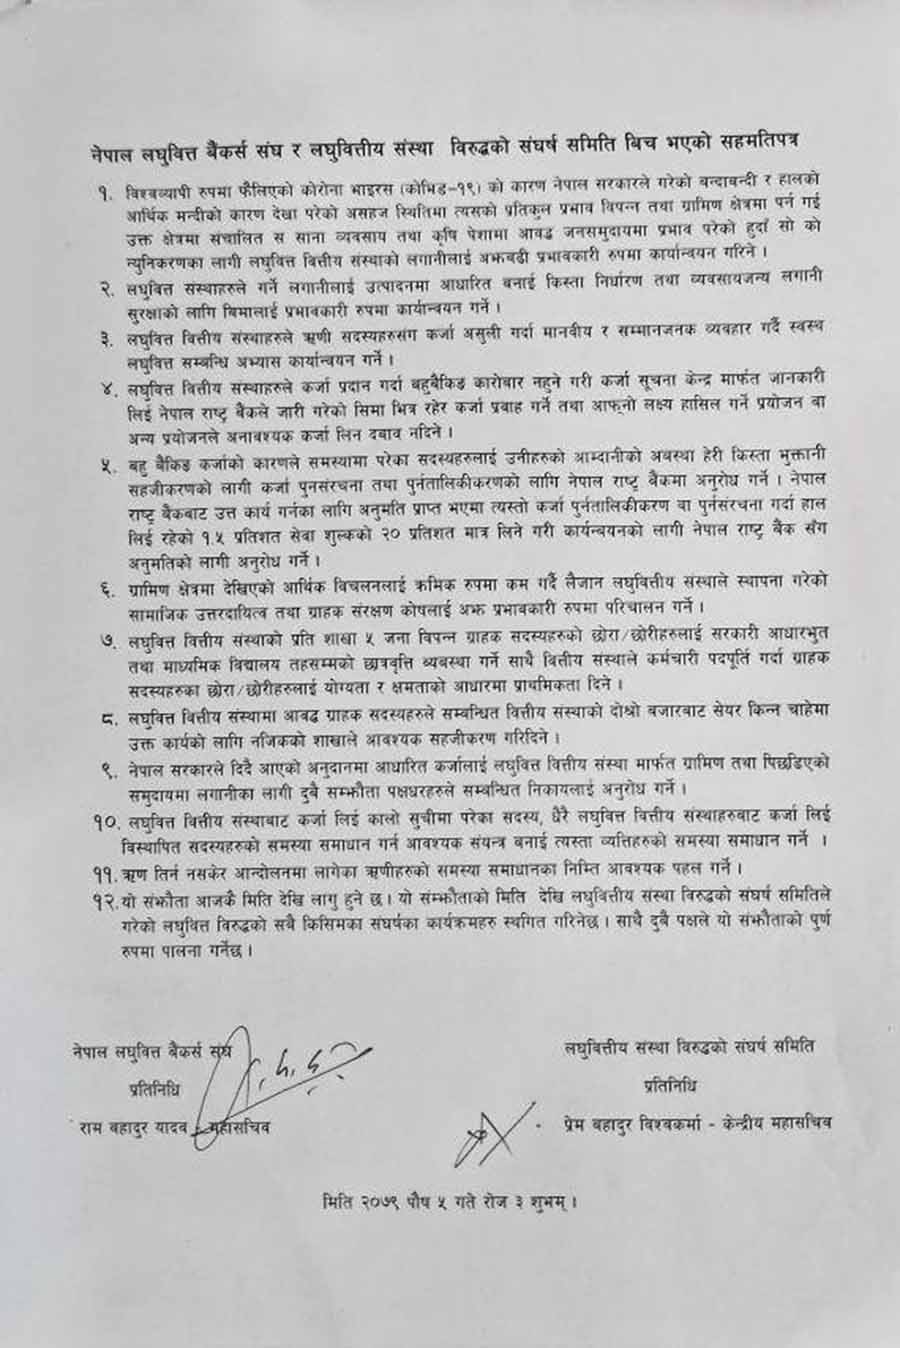 नेपाल लघुवित्त बैंकर्स संघ र लघुवित्तीय संस्था विरुद्धको संघर्ष समिति बिच भएको सहमतिपत्र
१. विश्वव्यापी रुपमा फैलिएको कोरोना भाइरस (कोभिड-१९) को कारण नेपाल सरकारले गरेको बन्दाबन्दी र हालको
आर्थिक मन्दीको कारण देखा परेको असहज स्थितिमा त्यसको प्रतिकुल प्रभाव विपन्न तथा ग्रामिण क्षेत्रमा पर्न गई
उक्त क्षेत्रमा संचालित स साना व्यवसाय तथा कृषि पेशामा आवद्ध जनसमुदायमा प्रभाव परेको हुदाँ सो को
न्युनिकरणका लागी लघुवित्त वित्तीय संस्थाको लगानीलाई अझबढी प्रभावकारी रुपमा कार्यान्वयन गरिने ।
२. लघुवित्त संस्थाहरुले गर्ने लगानीलाई उत्पादनमा आधारित बनाई किस्ता निर्धारण तथा व्यवसायजन्य लगानी
सुरक्षाको लागि बिमालाई प्रभावकारी रुपमा कार्यान्वयन गर्ने ।
३. लघुवित्त वित्तीय संस्थाहरुले ऋणी सदस्यहरुसंग कर्जा असुली गर्दा मानवीय र सम्मानजनक व्यवहार गर्दै स्वस्थ
लघुवित्त सम्बन्धि अभ्यास कार्यान्वयन गर्ने ।
४. लघुवित्त वित्तीय संस्थाहरुले कर्जा प्रदान गर्दा बहुबैकिङ कारोबार नहुने गरी कर्जा सूचना केन्द्र मार्फत जानकारी
लिई नेपाल राष्ट्र बैंकले जारी गरेको सिमा भित्र रहेर कर्जा प्रबाह गर्ने तथा आफ्नो लक्ष्य हासिल गर्ने प्रयोजन वा
अन्य प्रयोजनले अनावश्यक कर्जा लिन दबाव नदिने ।
५. बहु बैकिङ कर्जाको कारणले समस्यामा परेका सदस्यहरुलाई उनीहरुको आम्दानीको अवस्था हेरी किस्ता भुक्तानी
सहजीकरणको लागी कर्जा पुनसंरचना तथा पुर्नतालिकीकरणको लागि नेपाल राष्ट्र बैंकमा अनुरोध गर्ने । नेपाल
राष्ट्र बैकबाट उत्त कार्य गर्नका लागि अनुमति प्राप्त भएमा त्यस्तो कर्जा पुर्नतालिकीकरण वा पुर्नसंरचना गर्दा हाल
लिई रहेको १.५ प्रतिशत सेवा शुल्कको २० प्रतिशत मात्र लिने गरी कार्यन्वयनको लागी नेपाल राष्ट्र बैंक सँग
अनुमतिको लागी अनुरोध गर्ने ।
६. ग्रामिण क्षेत्रमा देखिएको आर्थिक विचलनलाई क्रमिक रुपमा कम गर्दै लैजान लघुवित्तीय संस्थाले स्थापना गरेको
सामाजिक उत्तरदायित्व तथा ग्राहक संरक्षण कोषलाई अझ प्रभावकारी रुपमा परिचालन गर्ने ।
७. लघुवित्त वित्तीय संस्थाको प्रति शाखा ५ जना विपन्न ग्राहक सदस्यहरुको छोरा/छोरीहरुलाई सरकारी आधारभुत
तथा माध्यमिक विद्यालय तहसम्मको छात्रवृत्ति ब्यवस्था गर्ने साथै वित्तीय संस्थाले कर्मचारी पदपूर्ति गर्दा ग्राहक
सदस्यहरुका छोरा/छोरीहरुलाई योग्यता र क्षमताको आधारमा प्राथमिकता दिने ।
८. लघुवित्त वित्तीय संस्थामा आबद्ध ग्राहक सदस्यहरुले सम्बन्धित वित्तीय संस्थाको दोश्रो बजारबाट सेयर किन्न चाहेमा
उक्त कार्यको लागि नजिकको शाखाले आवश्यक सहजीकरण गरिदिने ।
९. नेपाल सरकारले दिदै आएको अनुदानमा आधारित कर्जालाई लघुवित्त वित्तीय संस्था मार्फत ग्रामिण तथा पिछडिएको
समुदायमा लगानीका लागी दुबै सम्झौता पक्षधरहरुले सम्बन्धित निकायलाई अनुरोध गर्ने ।
१०. लघुवित्त वित्तीय संस्थाबाट कर्जा लिई कालो सुचीमा परेका सदस्य, धेरै लघुवित्त वित्तीय संस्थाहरुबाट कर्जा लिई
विस्थापित सदस्यहरुको समस्या समाधान गर्न आवश्यक संयन्त्र बनाई त्यस्ता व्यत्तिहरुको समस्या समाधान गर्ने ।
११. ऋण तिर्न नसकेर आन्दोलनमा लागेका ऋणीहरुको समस्या समाधानका निम्ति आवश्यक पहल गर्ने ।
१२. यो संझौता आजकै मिति देखि लागु हुने छ । यो सम्झौताको मिति देखि लघुवित्तीय संस्था विरुद्धको संघर्ष समितिले
गरेको लघुवित्त विरुद्धको सबै किसिमका संघर्षका कार्यक्रमहरु स्थगित गरिनेछ । साथै दुबै पक्षले यो संझौताको पुर्ण
रुपमा पालना गर्नेछ ।
नेपाल लघुवित्त बैंकर्स संघ
लघुवित्तीय संस्था विरुद्धको संघर्ष समिति
प्रतिनिधि
प्रतिनिधि
राम बहादुर यादव - महासचिव
प्रेम बहादुर विश्वकर्मा - केन्द्रीय महासचिव
मिति २०७९ पौष ५ गते रोज ३ शुभम् ।